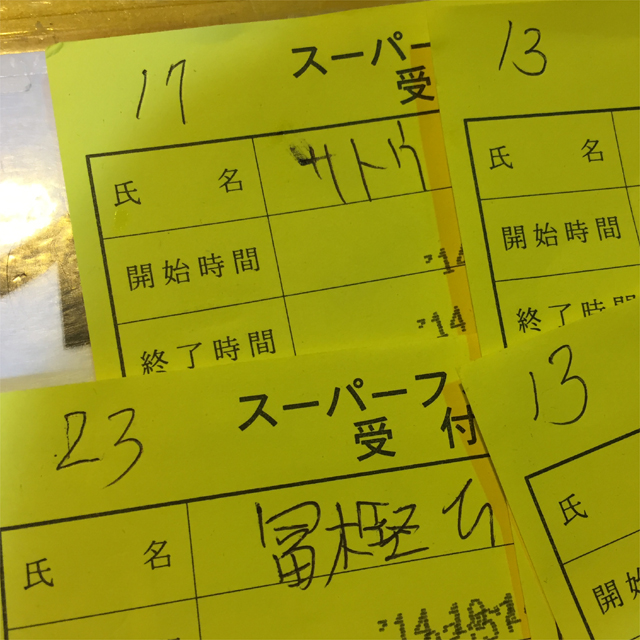 17
スーパー
受
氏名
サトウ
開始時間
'14
終了時間
'14
13
氏名
開始時間
終了時間
23
スーパーフ
受付
氏名
冨樫
'14.10.1
13
氏
開始